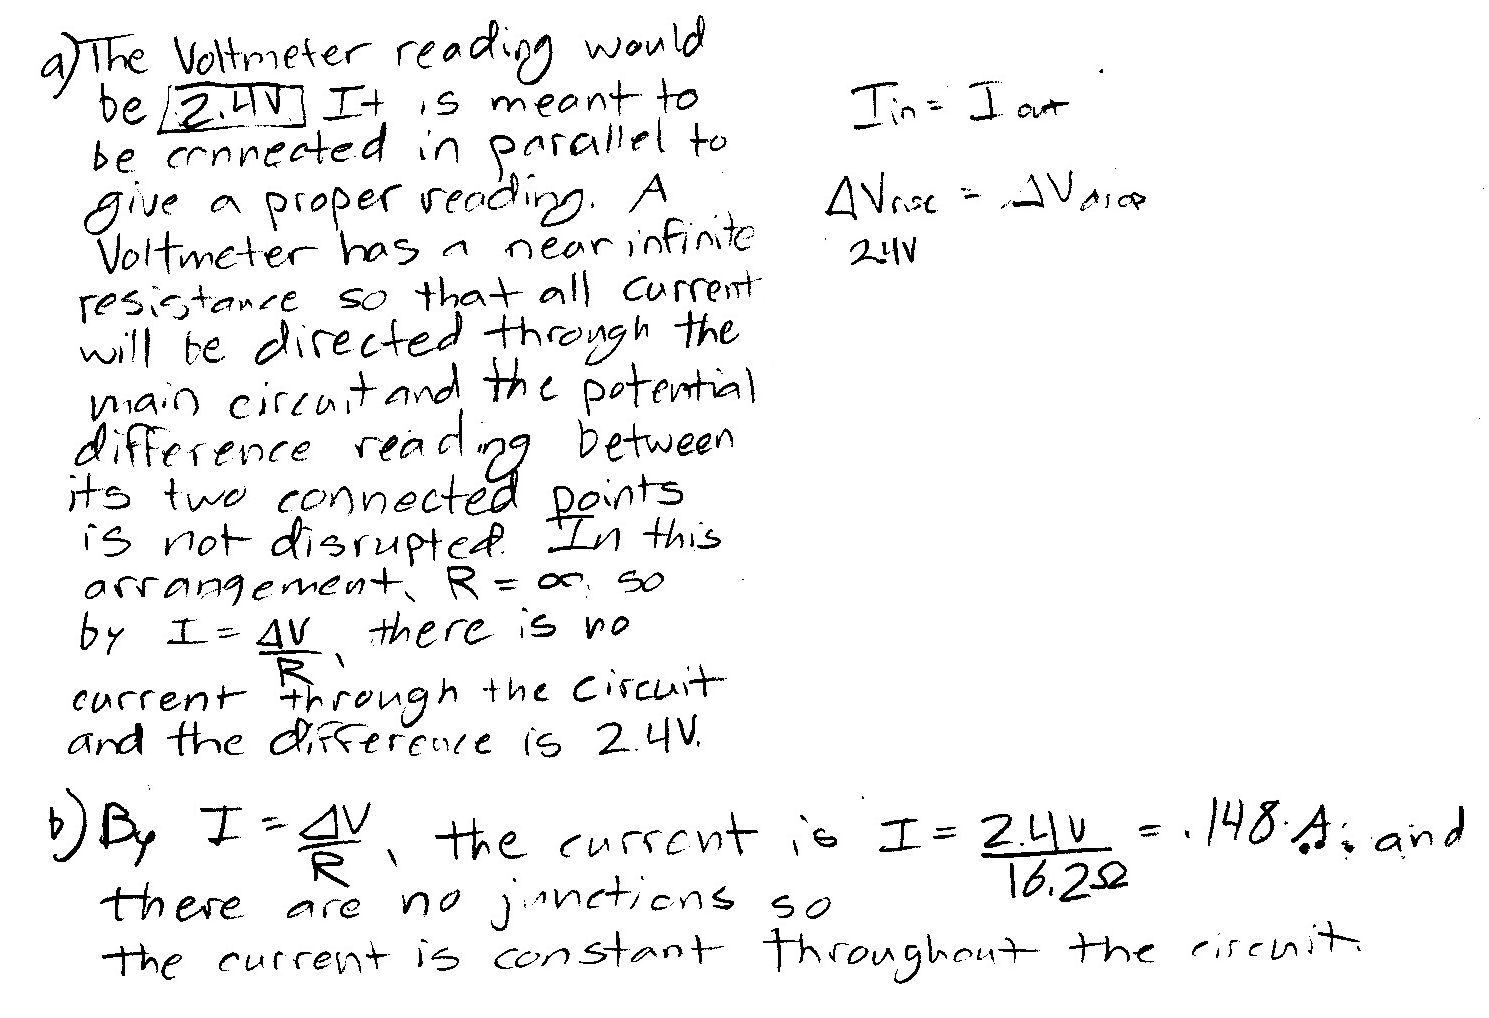 a) The Voltmeter reading would
be 2.4V It is meant to
be connected in parallel to
give a proper reading. A
Voltmeter has a near infinite
resistance so that all current
will be directed through the
main circuit and the potential
difference reading between
its two connected points
is not disrupted. In this
arrangement, R = ∞, so
by I = ΔV/R, there is no
current through the circuit
and the difference is 2.4V.
I in = I out
ΔV rise = ΔV drop
2.4V
b) By I = ΔV/R, the current is I = 2.4V/16.2Ω = .148 A, and
there are no junctions so
the current is constant throughout the circuit.